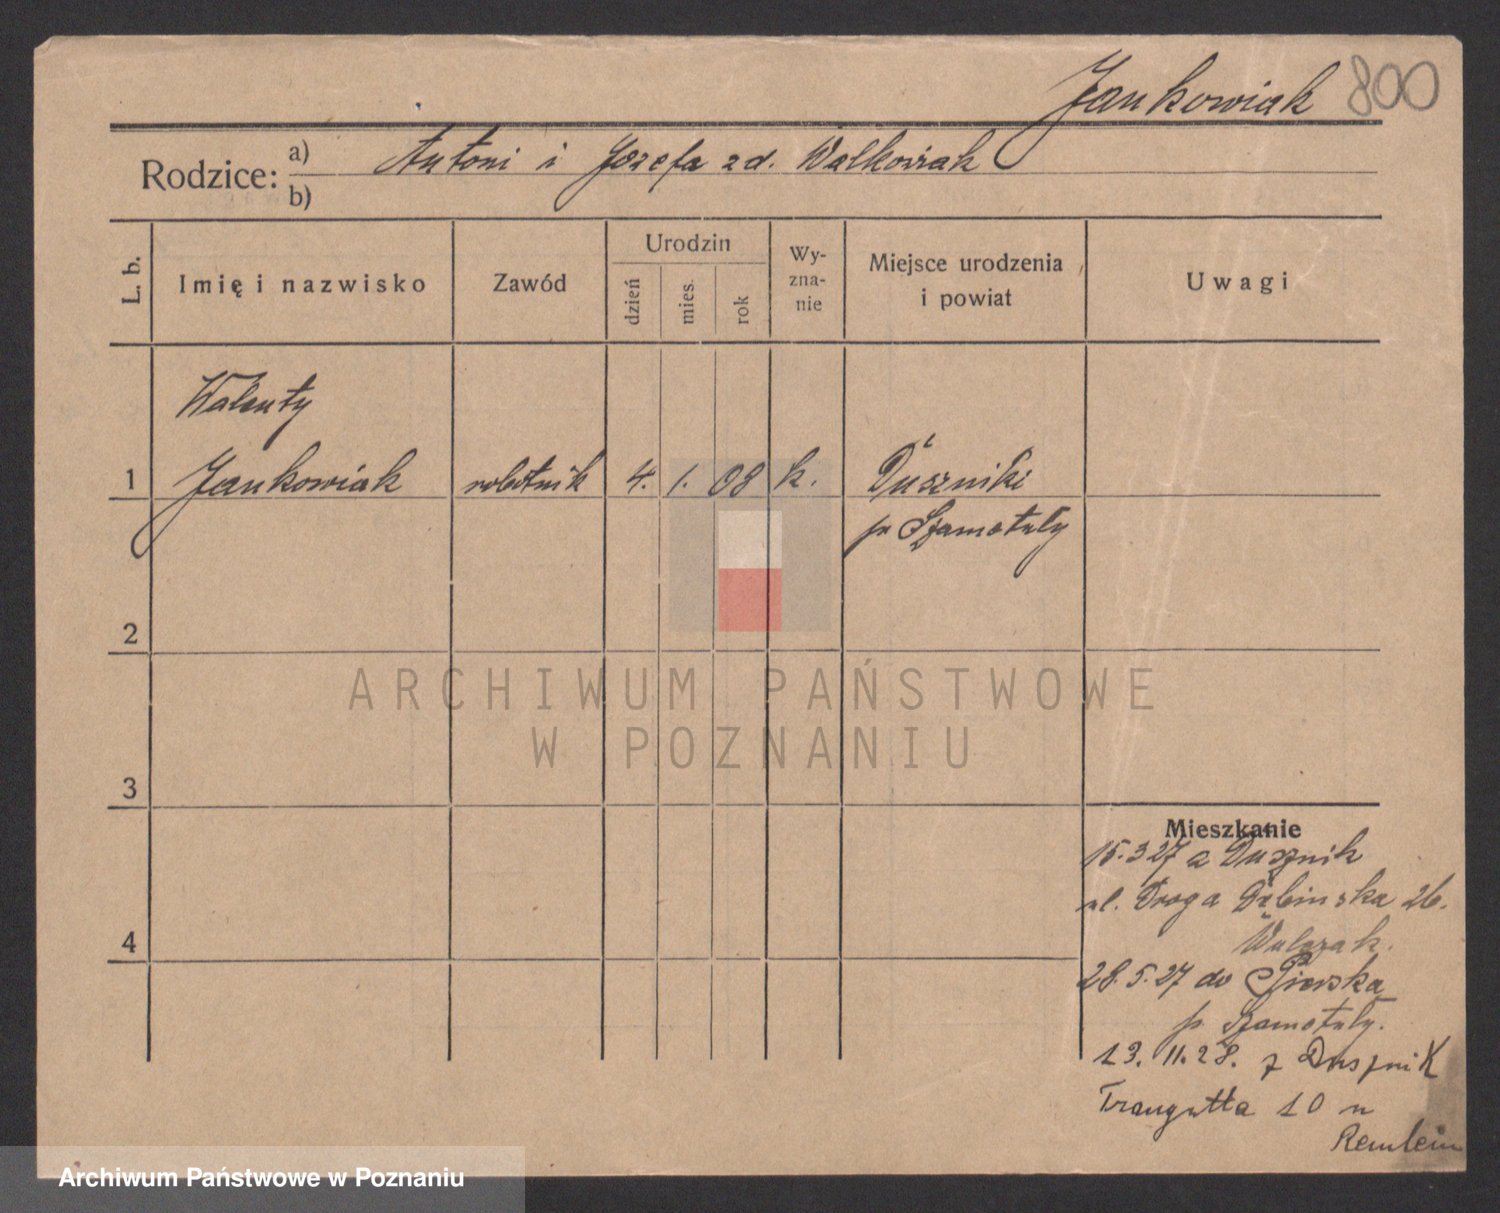 Jankowiak 800
Rodzice: a) Antoni i Józefa zd. Walkowiak
b)
L. b.
Imię i nazwisko
Zawód
Urodzin
dzień
mies.
rok
Wy-
zna-
nie
Miejsce urodzenia
i powiat
Uwagi
Walenty
1 Jankowiak robotnik 4. 1. 08 k. Duszniki
p. Szamotuły
2
ARCHIWUM PAŃSTWOWE
W POZNANIU
3
Mieszkanie
15.3 27 a Dusznik
ul. Droga Dębinska 26.
4 Walczak.
28.5.27 do
p. Szamotuły.
13. 11. 28. z Dusznik
Traugutta 10 u
Remlein
Archiwum Państwowe w Poznaniu